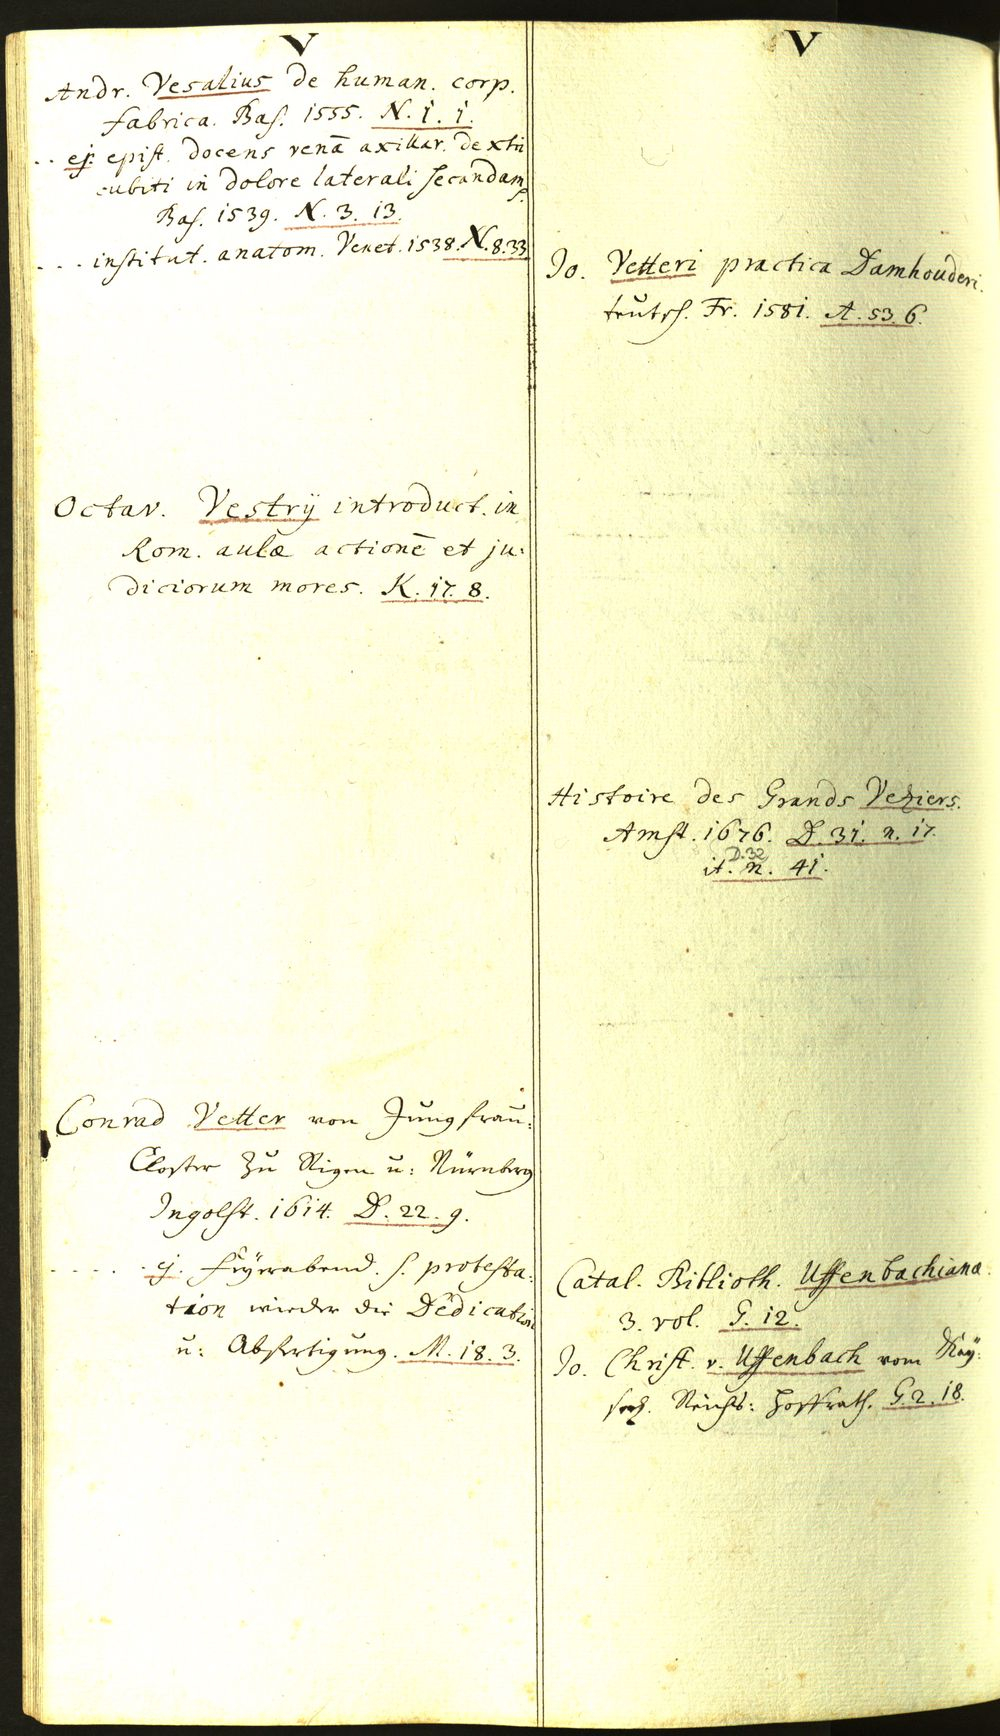 V
Andr. Vesalius de human. corp.
fabrica. Bas. 1555. N. 1. 1.
. . ej. epist. docens venā axillar. dextri
cubiti in dolore laterali secandam
Bas. 1539. N. 3. 13.
. . . institut. anatom. Venet. 1538. N. 8. 33
Octav. Vestrij introduct. in
Rom. aulæ actionē et ju:
diciorum mores. K. 17. 8.
Conrad Vetter von Jungfrau:
Closter zu u: Nürnberg
Ingolst. 1614. D. 22. 9.
. . . . . ej. Feyerabend. s. protesta:
tion wieder die Dedication
u: Abfertigung. M. 18. 3.
V
Jo. Vetteri practica Damhouderi.
teutsch. Fr. 1581. A. 53. 6.
Histoire des Grands Veziers.
Amst. 1676. D. 31. n. 17.
D. 32
it. n. 41.
Catal. Biblioth. Uffenbachiana.
3. vol. G. 12.
Jo. Christ. v. Uffenbach vom Kay:
serl. Reichs: Hoffrath. G. 2. 18.